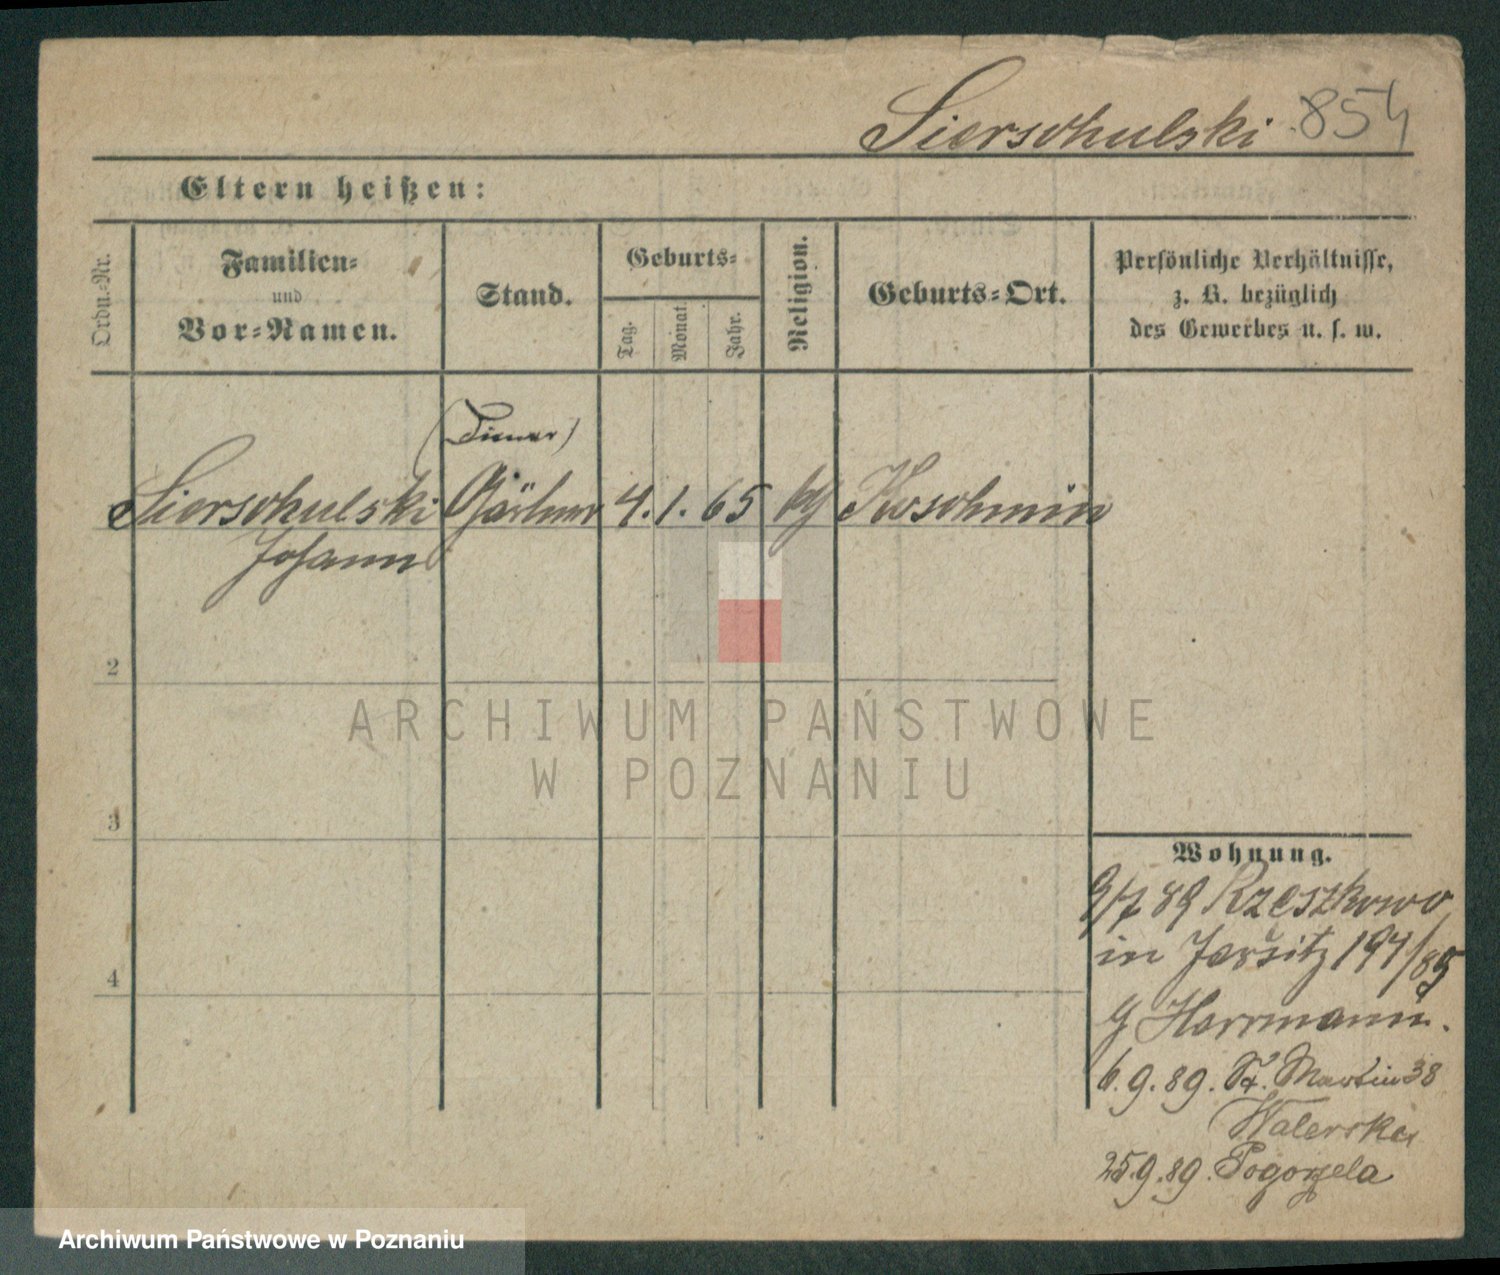 Sierschulski 854
Eltern heißen:
Ordn.-Nr.
Familien-
und
Vor-Namen.
Stand.
Geburts-
Tag.
Monat.
Jahr.
Religion.
Geburts-Ort.
Persönliche Verhältnisse,
z. B. bezüglich
des Gewerbes u. s. w.
(Diener)
Sierschulski Gärtner 4. 1. 65 kth Koschmin
Johann
2
3
4
Wohnung.
9/7 89 Rzeszkowo
in Jersitz 194/89
Herrmann.
6.9.89. St. Martin 38
Walerska
25.9.89. Pogorzela
ARCHIWUM PAŃSTWOWE
W POZNANIU
Archiwum Państwowe w Poznaniu